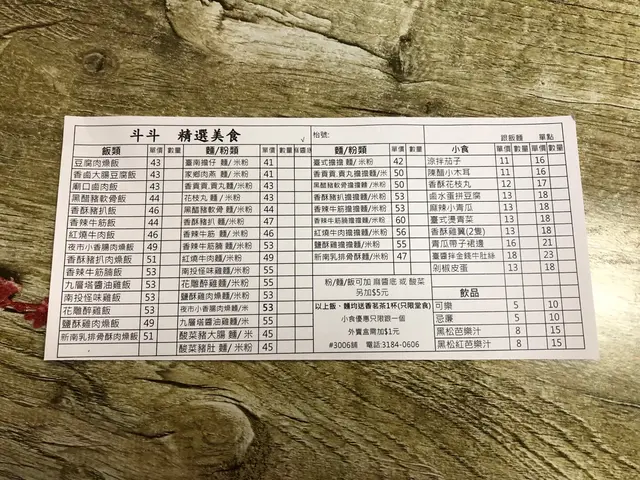 斗斗 精選美食 √ 枱號: 跟飯麵 單點
飯類 單價 數量 麵/粉類 單價 數量 麵/粉類 單價 數量 小食 單價 數量 單價 數量
豆腐肉燥飯 43 臺南擔仔 麵/米粉 41 臺式擔擔 麵/米粉 42 涼拌茄子 11 16
香滷大腸豆腐飯 43 家鄉肉燕 麵/米粉 41 香貴貢,貢丸擔擔麵/米 50 陳醋小木耳 11 16
廟口鹵肉飯 43 香貴貢,貢丸麵/米粉 43 黑醋豬軟骨擔擔麵/米粉 50 香酥花枝丸 12 17
黑醋豬軟骨飯 44 花枝丸 麵/米粉 43 香酥豬扒擔擔麵/米粉 53 鹵水蛋拼豆腐 13 18
香酥豬扒飯 46 黑醋豬軟骨 麵/米粉 44 香辣牛筋擔擔麵/米粉 53 麻辣小青瓜 13 18
香辣牛筋飯 44 香酥豬扒 麵/米粉 47 香辣牛筋腩擔麵/米粉 60 臺式燙青菜 13 18
紅燒牛肉飯 46 香辣牛筋 麵/米粉 46 紅燒牛肉擔擔麵/米粉 56 香酥雞翼(2隻) 13 18
夜市小香腸肉燥飯 49 香辣牛筋腩麵/米粉 53 鹽酥雞擔擔麵/米粉 55 青瓜帶子裙邊 16 21
香酥豬扒肉燥飯 51 紅燒牛肉 麵/米粉 49 新南乳排骨酥擔麵/米粉 47 臺醬拌金錢牛肚絲 13 18
香辣牛筋腩飯 53 南投怪味雞麵/米粉 55 剁椒皮蛋 13 18
九層塔醬油雞飯 53 花雕醉雞麵/米粉 55 粉/麵/飯可加 麻醬底 或 酸菜
南投怪味雞飯 53 鹽酥雞肉麵/米粉 53 另加$5元 飲品
花雕醉雞飯 53 夜市小香腸肉燥麵/米粉 53 以上飯、麵均送香茗茶1杯(只限堂食) 可樂 5 10
鹽酥雞肉燥飯 49 九層塔醬油雞麵/米 55 小食優惠只限跟一個 忌廉 5 10
新南乳排骨酥肉燥飯 51 酸菜豬大腸 麵/米粉 45 外賣盒需加$1元 黑松芭樂汁 8 15
酸菜豬肚 麵/米粉 45 #3006舖 電話:3184-0606 黑松紅芭樂汁 8 15